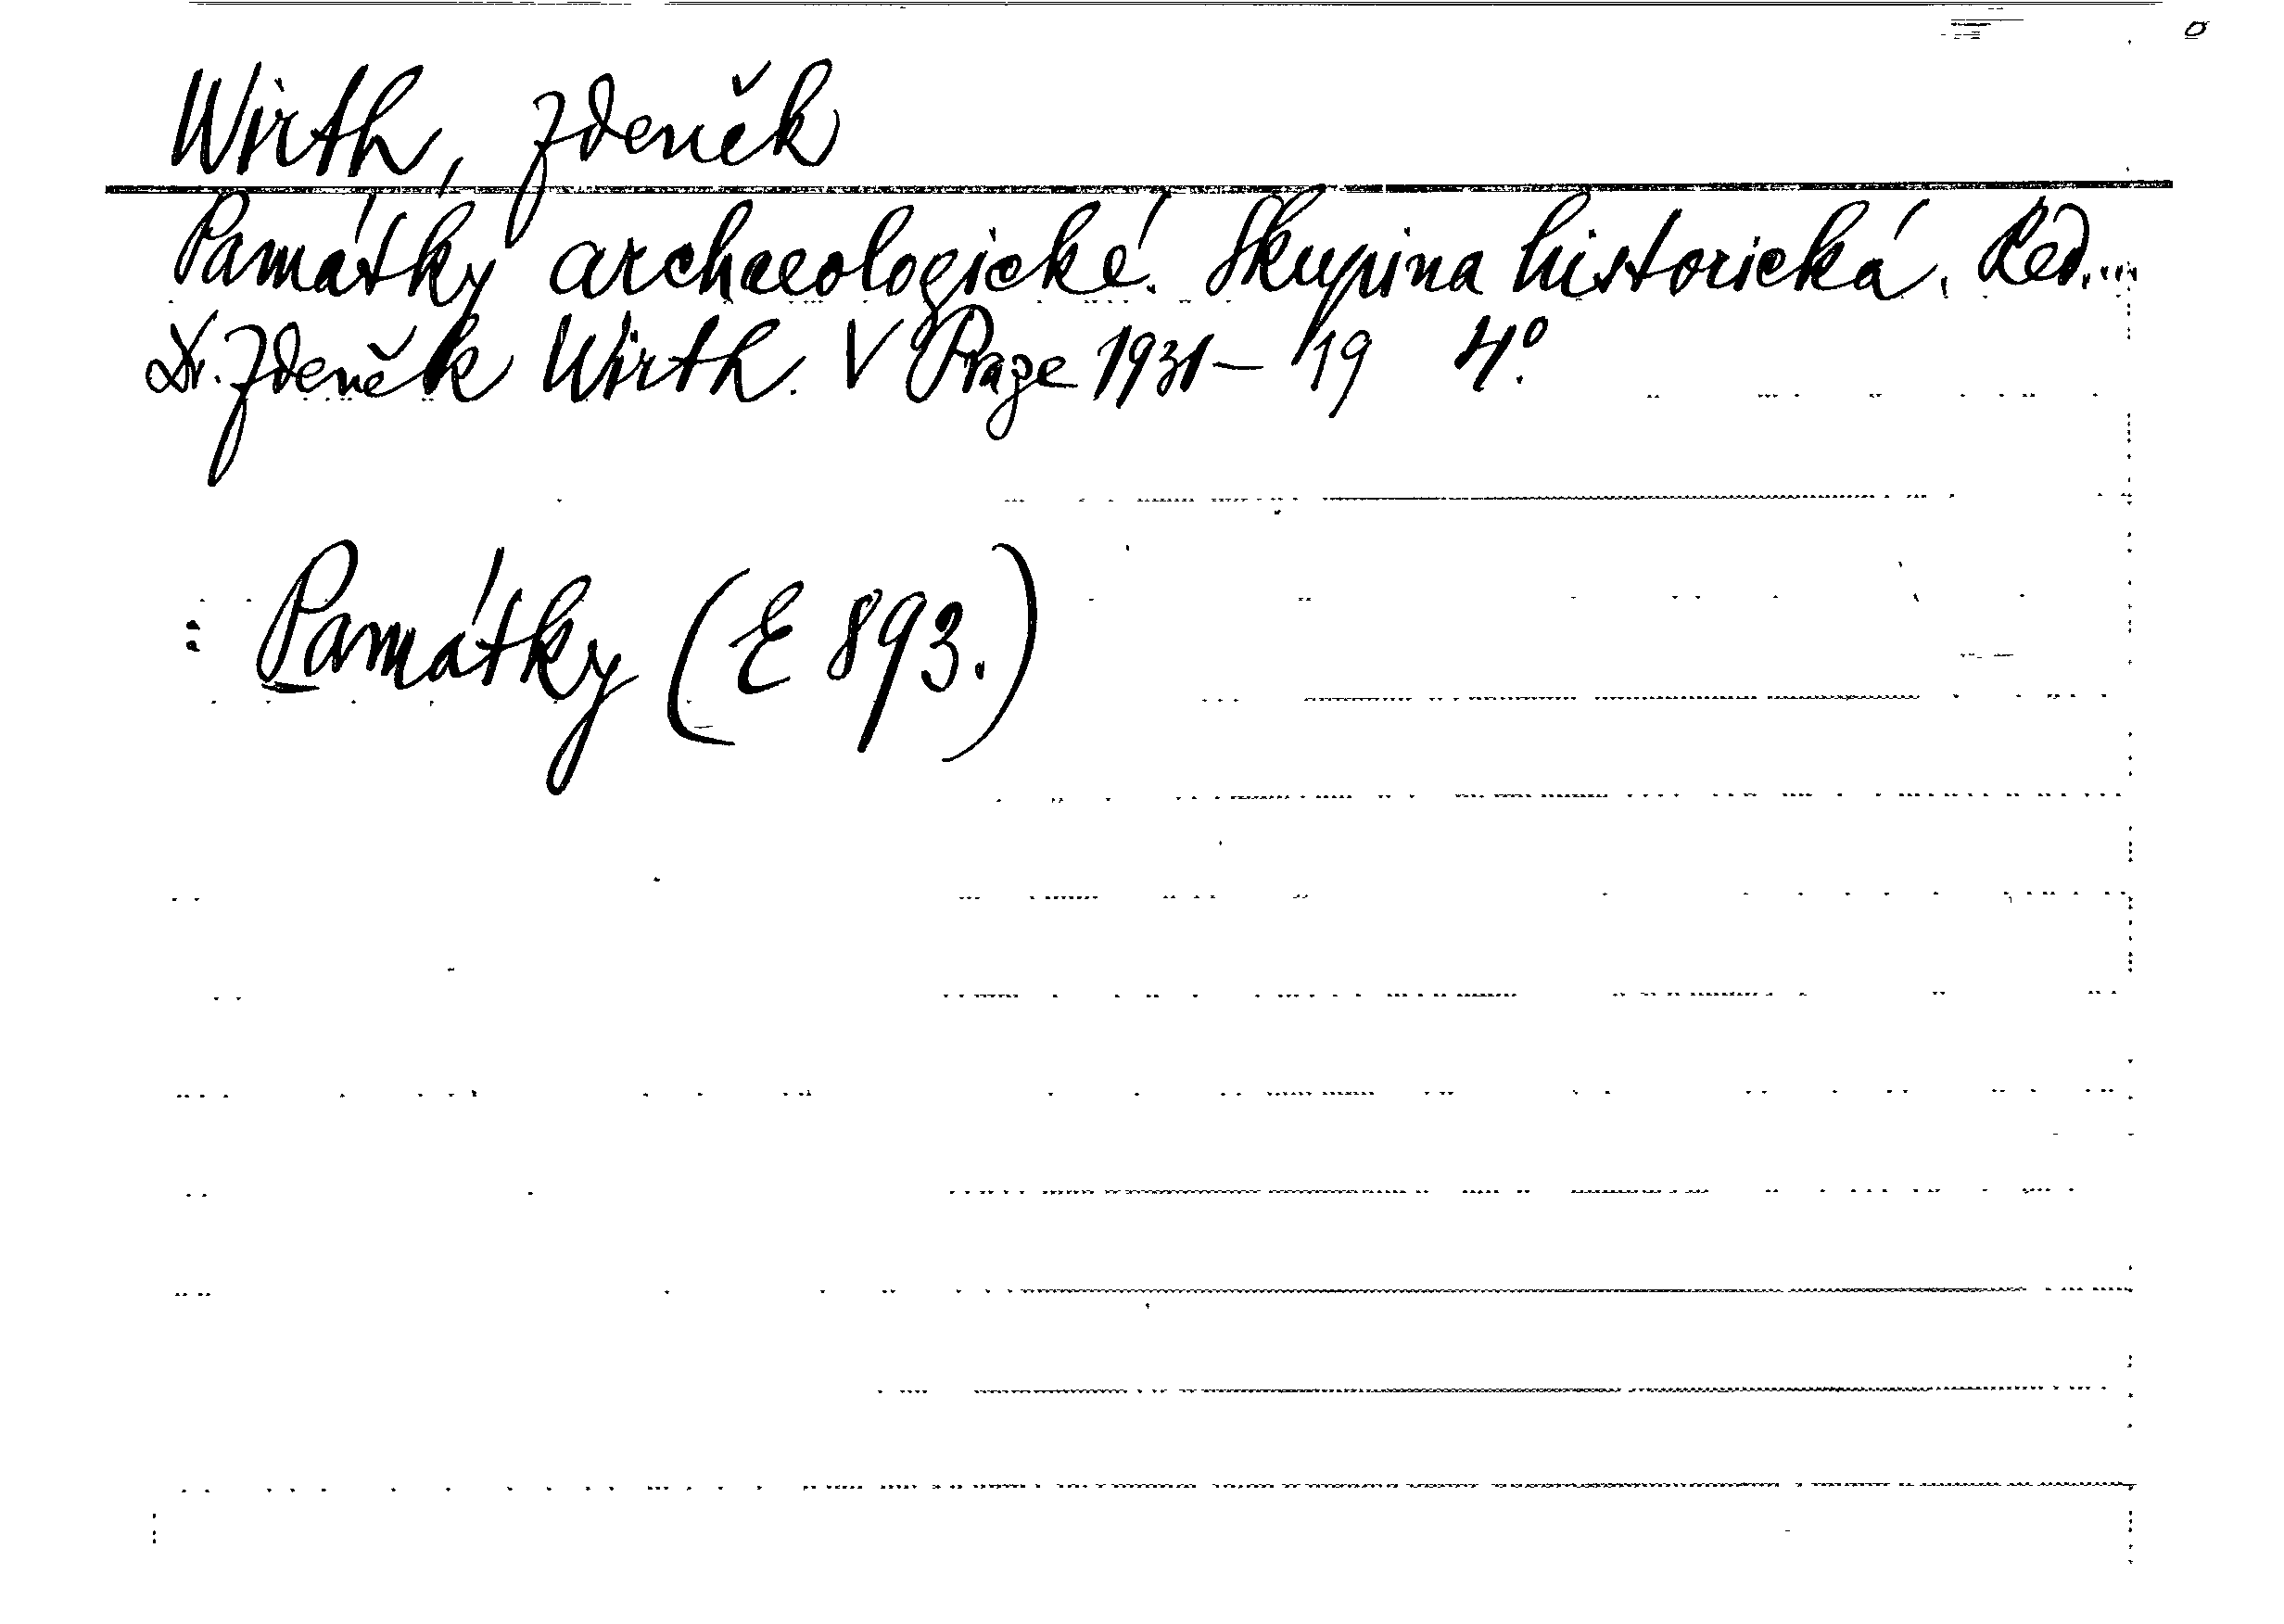 Wirth, Zdeněk
Památky archaeologické. Skupina historická. Red....
Dr. Zdeněk Wirth. V Praze 1931— 19 4°.
: Památky (E 893.)